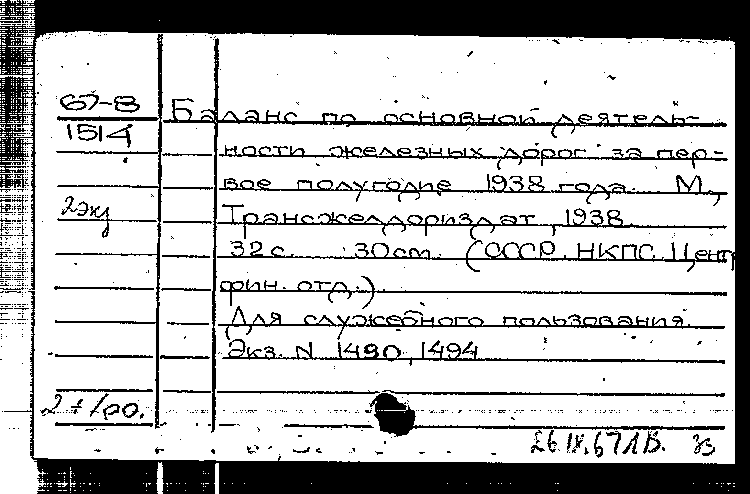 67-8
1514
Баланс по основной деятель-
ности железных дорог за пер-
вое полугодие 1938 года. М.,
2 экз
Трансжелдориздат, 1938.
32 с. 30 см. (СССР. НКПС. Центр
фин. отд.)
Для служебного пользования.
Экз. N 1490, 1494
26.IX.67